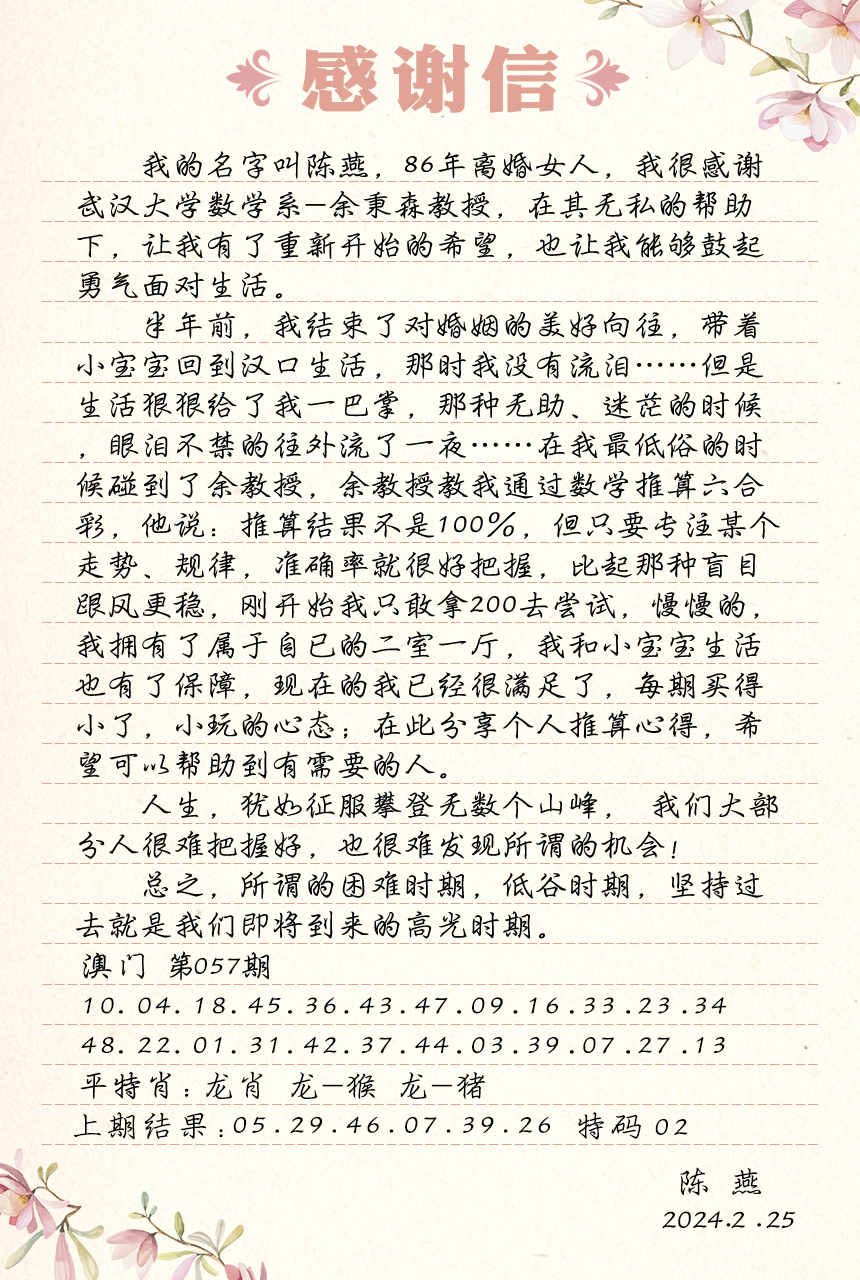 感谢信
我的名字叫陈燕，86年离婚女人，我很感谢
武汉大学数学系—余秉森教授，在其无私的帮助
下，让我有了重新开始的希望，也让我能够鼓起
勇气面对生活。
半年前，我结束了对婚姻的美好向往，带着
小宝宝回到汉口生活，那时我没有流泪……但是
生活狠狠给了我一巴掌，那种无助、迷茫的时候
，眼泪不禁的往外流了一夜……在我最低俗的时
候碰到了余教授，余教授教我通过数学推算六合
彩，他说：推算结果不是100%，但只要专注某个
走势、规律，准确率就很好把握，比起那种盲目
跟风更稳，刚开始我只敢拿200去尝试，慢慢的，
我拥有了属于自已的二室一厅，我和小宝宝生活
也有了保障，现在的我已经很满足了，每期买得
小了，小玩的心态；在此分享个人推算心得，希
望可以帮助到有需要的人。
人生，犹如征服攀登无数个山峰， 我们大部
分人很难把握好，也很难发现所谓的机会！
总之，所谓的困难时期，低谷时期，坚持过
去就是我们即将到来的高光时期。
澳门 第057期
10.04.18.45.36.43.47.09.16.33.23.34
48.22.01.31.42.37.44.03.39.07.27.13
平特肖：龙肖 龙—猴 龙—猪
上期结果：05.29.46.07.39.26 特码 02
陈 燕
2024.2.25